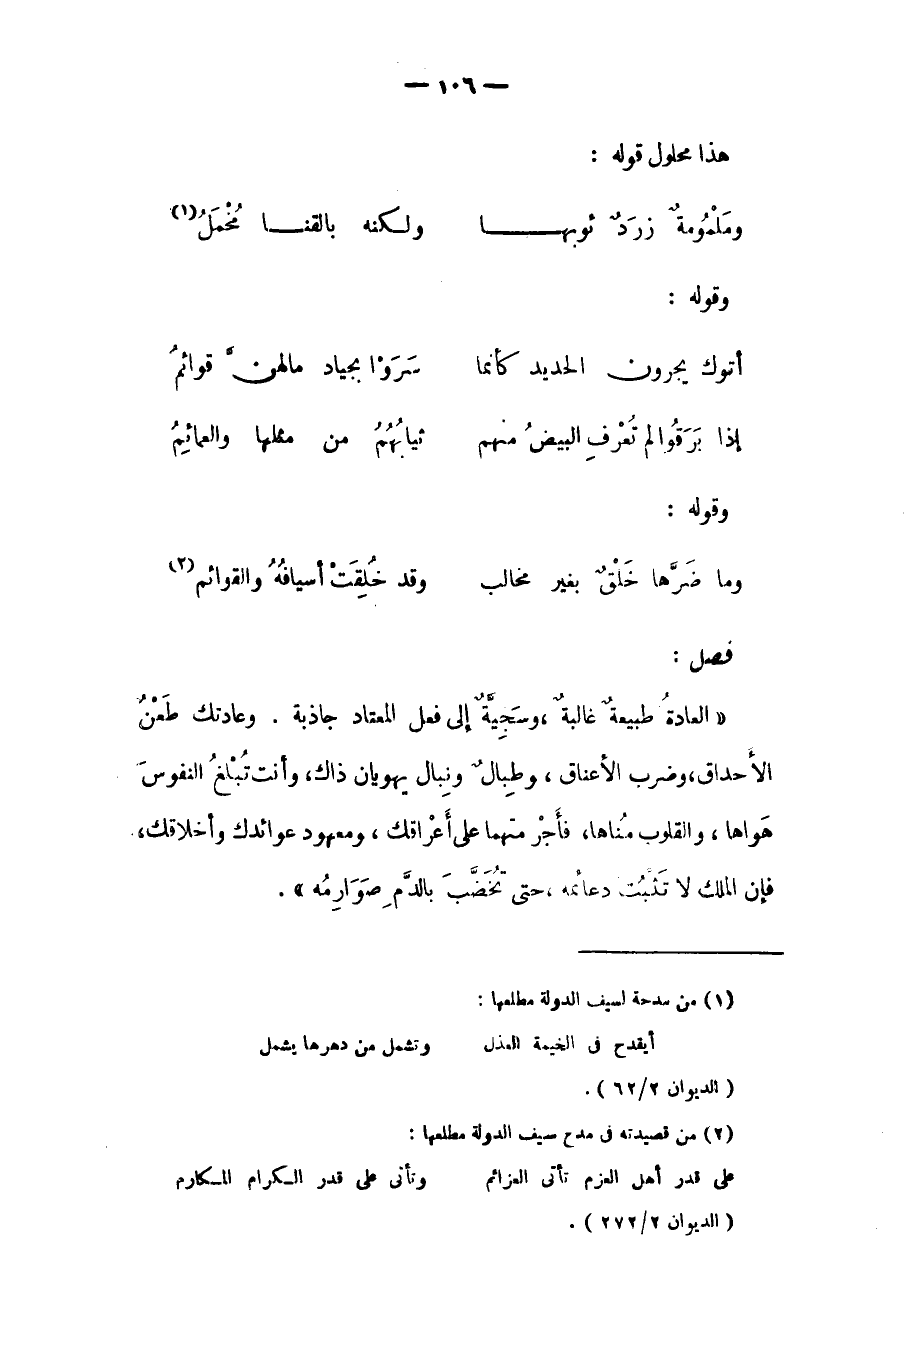 — ١٠٦ —
هذا محلول قوله :
ومَلْمُومةٌ زرَدٌ ثوبهــــا ولـكنه بالقنــا مُخْمَلُ(١)
وقوله :
أتوك يجرون الحديد كأنما سَرَوْا بجياد مالهن َّ قوائمُ
إذا بَرَقُوا لم تُعْرفِ البيضُ منهم ثيابُهُمُ من مثلها والعمائِمُ
وقوله :
وما ضَرَّها خَلْقٌ بغير مخالب وقد خُلِقَتْ أسيافهُ والقوائم(٢)
فصل :
« العادةُ طبيعةٌ غالبةٌ ،وسَجِيَّةٌ إلى فعل المعتاد جاذبة . وعادتك طَعْنُ
الأَحداق،وضرب الأعناق ، وطِبالٌ ونِبال يهويان ذاك، وأنت تُبْلغُ النفوسَ
هَواها ، والقلوب مُناها، فأَجْرِ منهما على أَعْراقك ، ومعهود عوائدك وأخلاقك،
فإن الملك لا تَثْبُت دعائمه ،حتى تُخَضَّبَ بالدَّمِ صَوَارِمُه » .
(١) من مدحة لسيف الدولة مطلعها :
أيقدح فى الخيمة العذل وتشمل من دهرها يشمل
( الديوان ٦٢/٢ ) .
(٢) من قصيدته فى مدح سيف الدولة مطلعها :
على قدر أهل العزم تأتى العزائم وتأتى على قدر الـكرام المـكارم
( الديوان ٢٧٢/٢ ) .